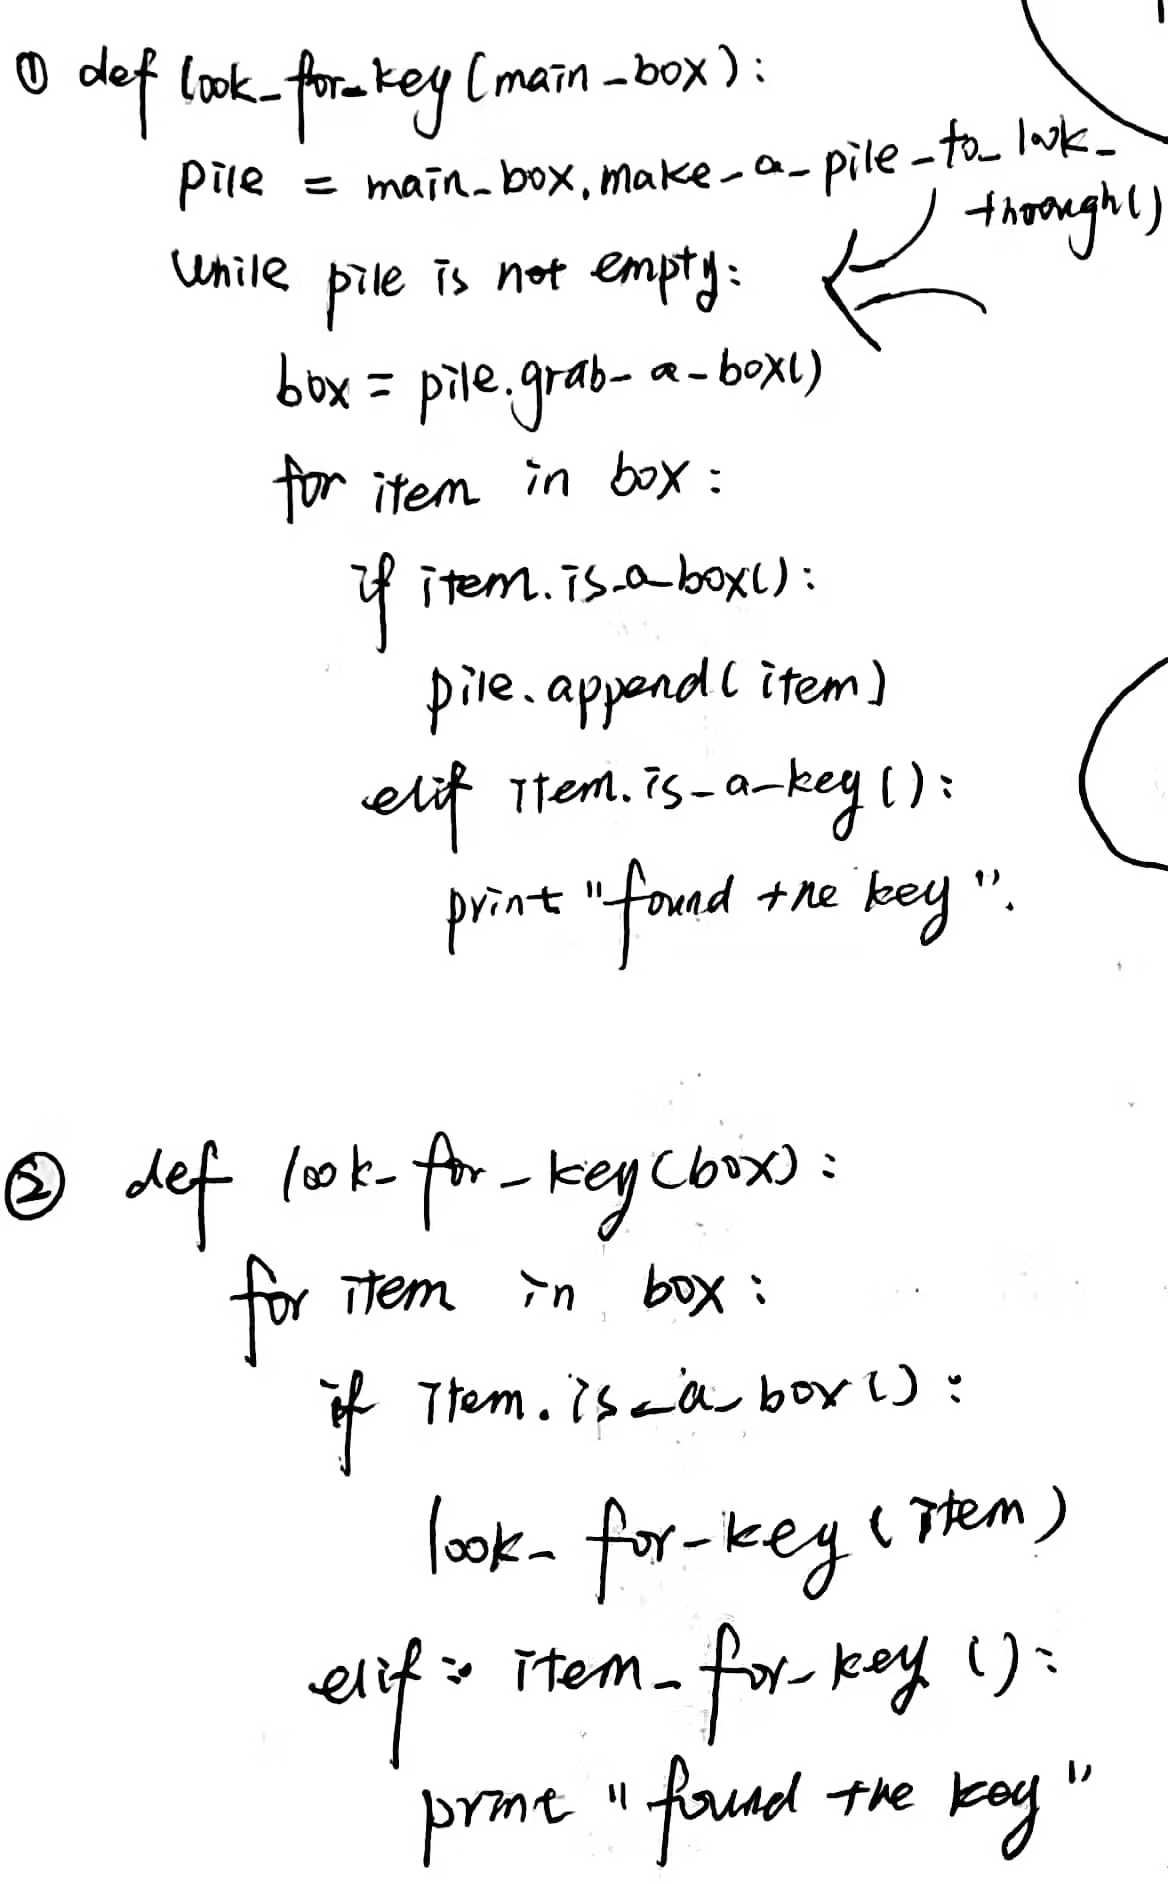 ① def look_for_key(main_box):
pile = main_box.make_a_pile_to_look_
through()
while pile is not empty:
box = pile.grab_a_box()
for item in box:
if item.is_a_box():
pile.append(item)
elif item.is_a_key():
print "found the key".
② def look_for_key(box):
for item in box:
if item.is_a_box():
look_for_key(item)
elif: item_for_key():
print "found the key"